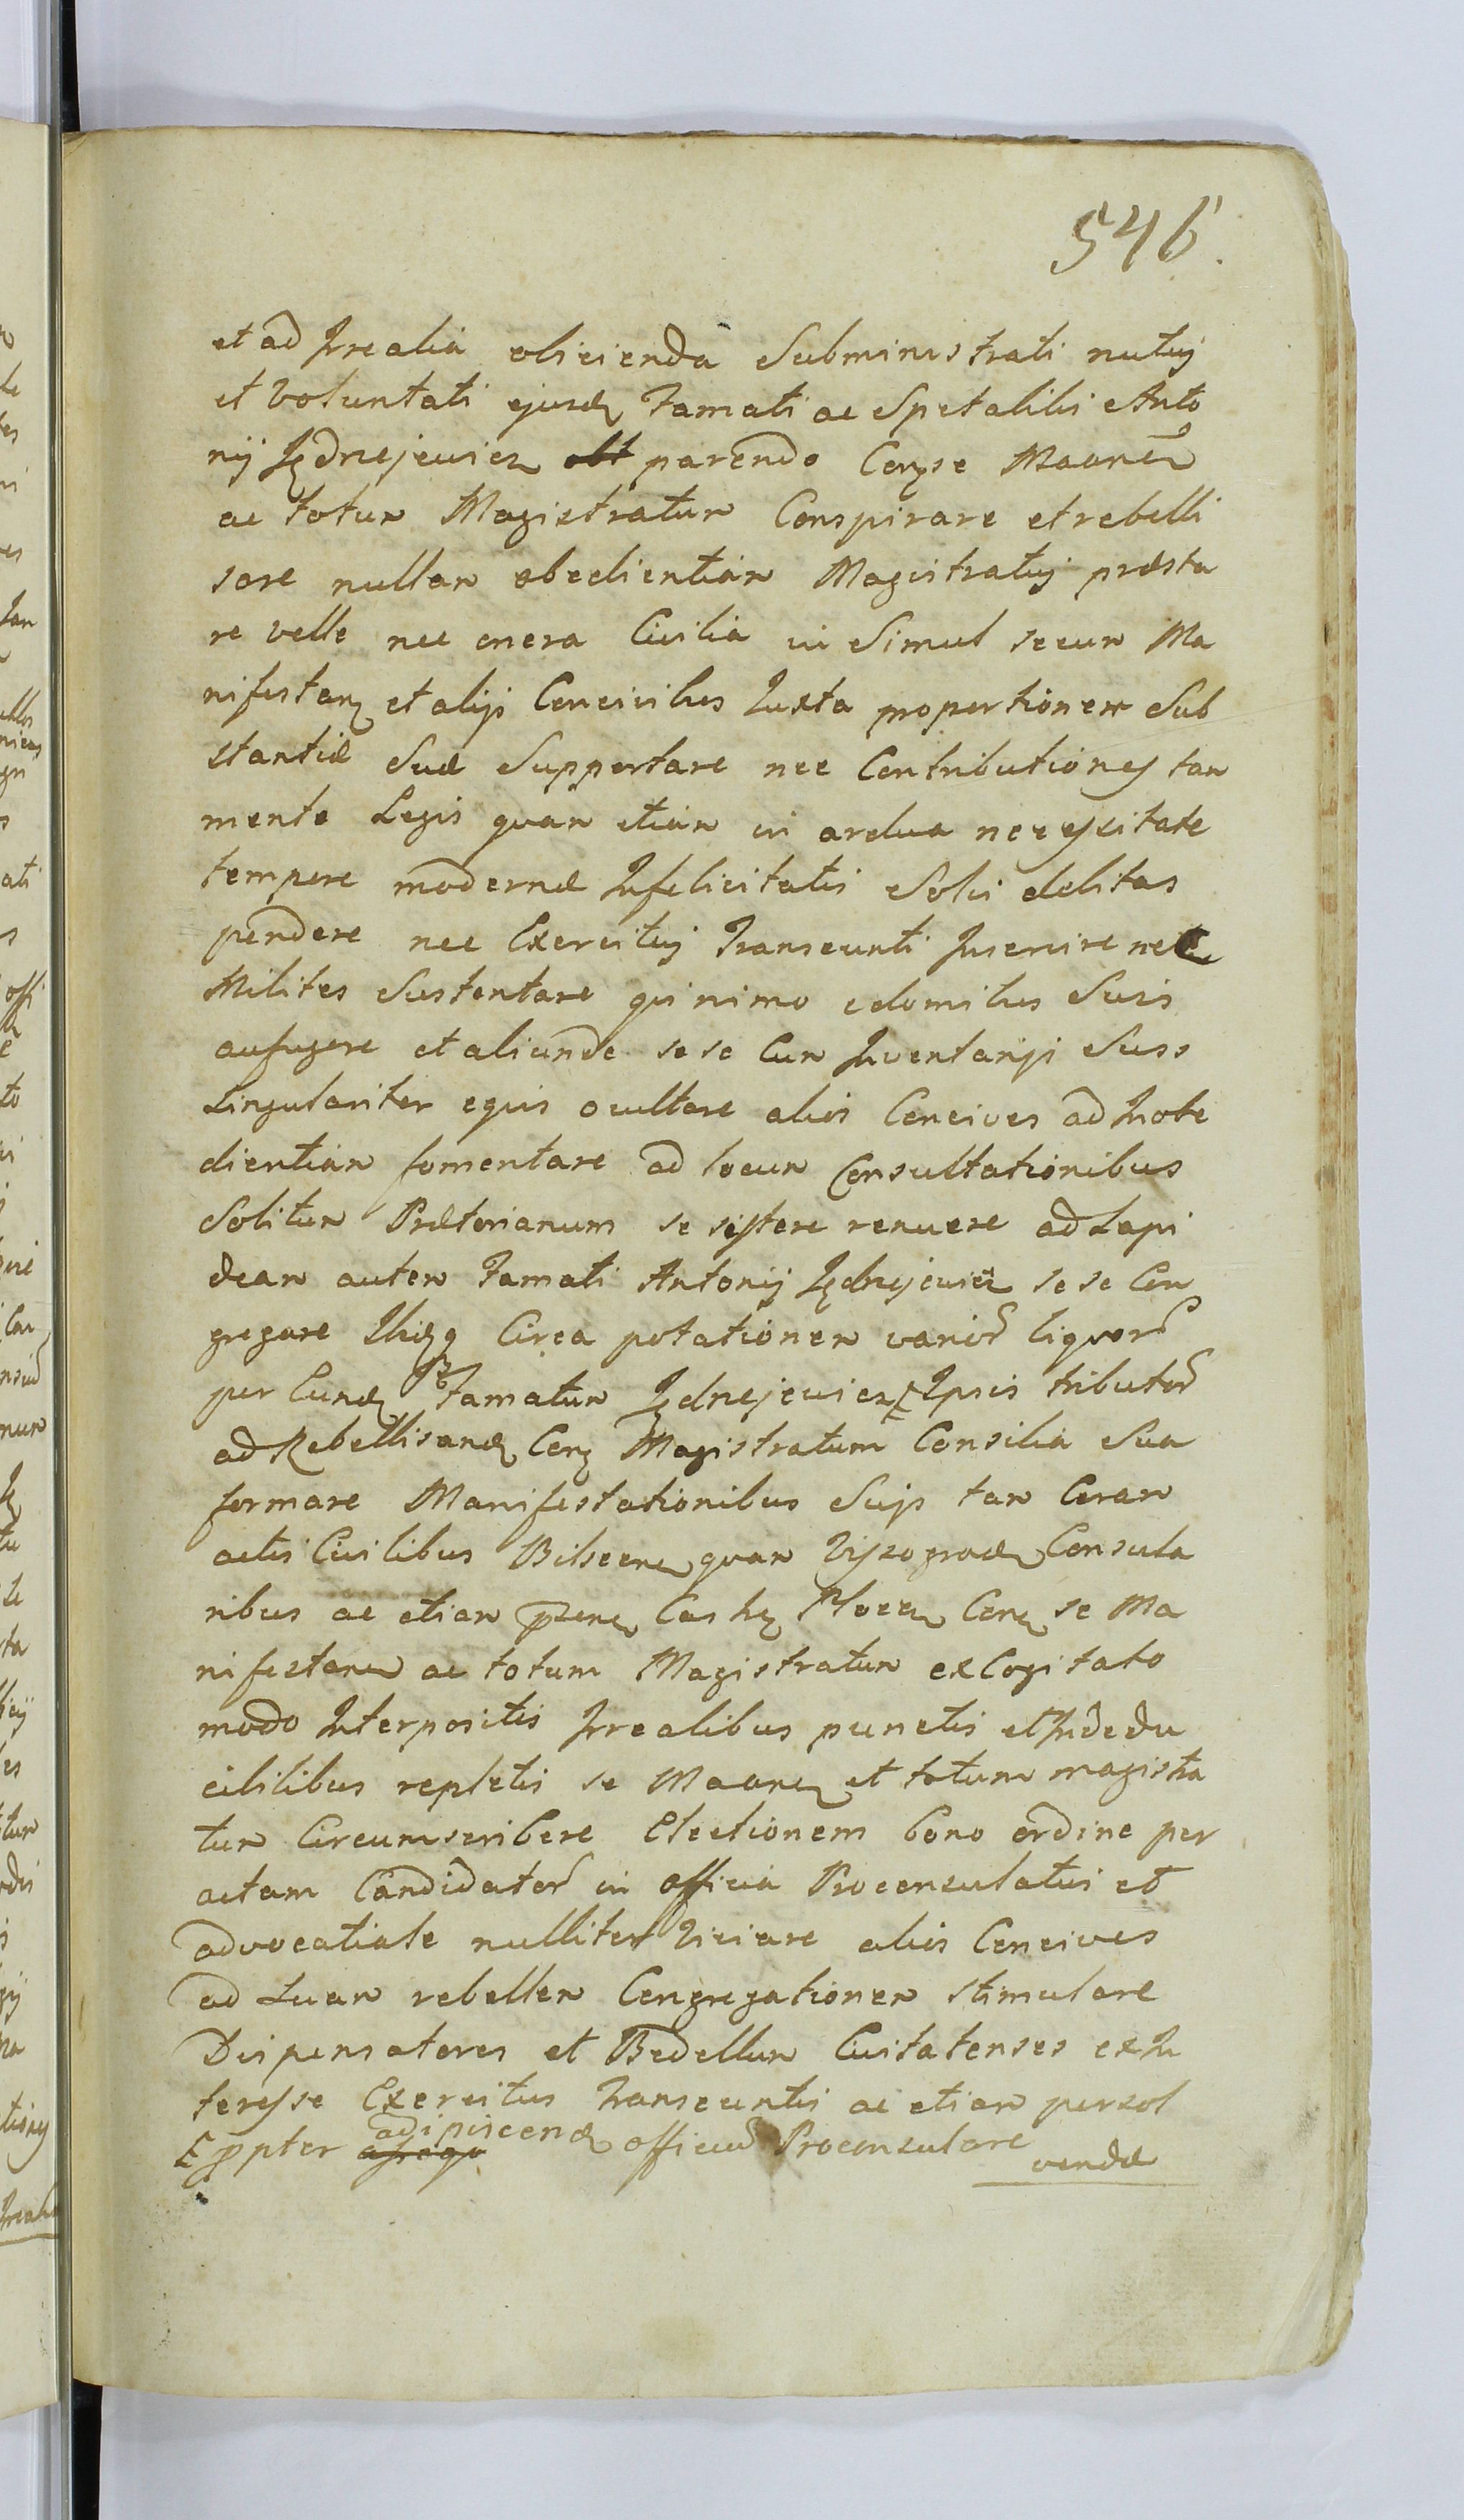 546.
et ad Irrealia eliicienda Subministrati nutuj
et Voluntati ejusd Famati ac Spetabilis Anto
nij Jędrzejewicz parendo Conse Maane
ac totum Magistratum Conspirare et rebelli
sare nullam obedientiam Magistratuj præsta
re velle nec onera Civilia in Simul secum Ma
nifestan et alijs Concivibus Iuxta proportionem Sub
stantiæ Suæ Supportare nec Contributiones tam
mente Legis quam etiam in ardua necessitate
tempore modernæ Infelicitatis Soli debitas
pendere nec Exercituj Transeunti Inservire nec
Milites Sustentare quinimo e domibus Suis
aufugere et aliunde sese Cum Inventarijs Suis
Singulariter equis ocultare alios Concives ad Inobe
dientiam fomentare ad locum Consultationibus
Solitum Prætorianum se sistere renuere ad Lapi
deam autem Famati Antonij Jędrzejewicz sese Con
gregare Ibidq Circa potationem varior liquor
per Eund Famatum Jędrzejewicz Ipsis tributor
ad Rebellisand Con Magistratum Consilia Sua
formare Manifestationibus Suis tam Coram
actis Civilibus Bilscen quam Vyszograd Consula
ribus ac etiam Castr Plocen Con se Ma
nifestan ac totum Magistratum excogitato
modo Interpositis Irrealibus punctis et Indedu
cibilibus repletis se Maane et totum magistra
tum Circumscribere Electionem bono ordine per
actam Candidator in officia Proconsulatus et
advocatiale nulliter Viciare alios Concives
ad Suam rebellem Congregationem stimulare
Dispensatores et Bedellum Civitatenses ex In
teresse Exercitus Transeuntis ac etiam persol
vendæ
ppter adipiscend officium Proconsulare